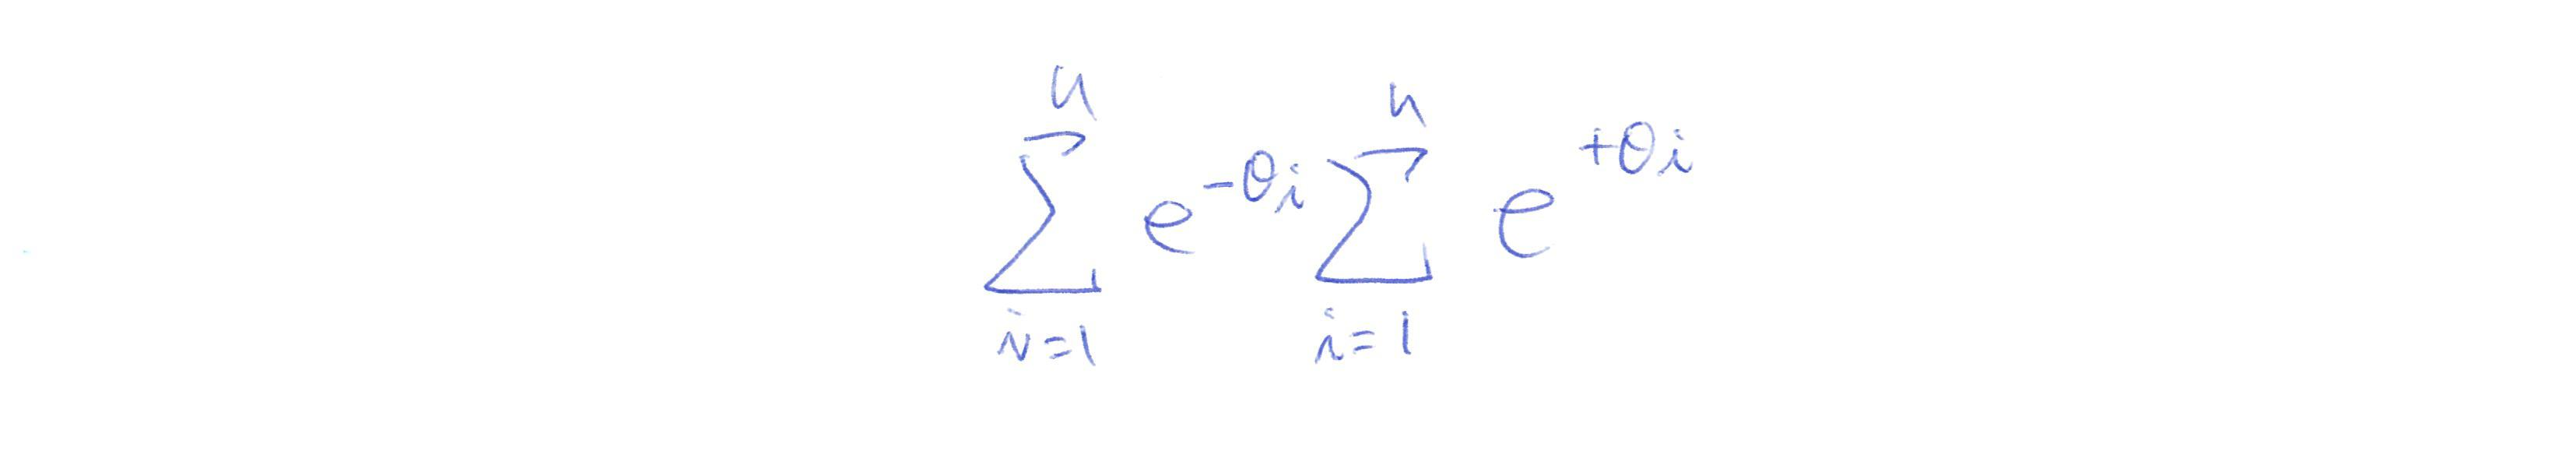 \sum_{i=1}^{n} e^{-\theta_i} \sum_{i=1}^{n} e^{+\theta_i}